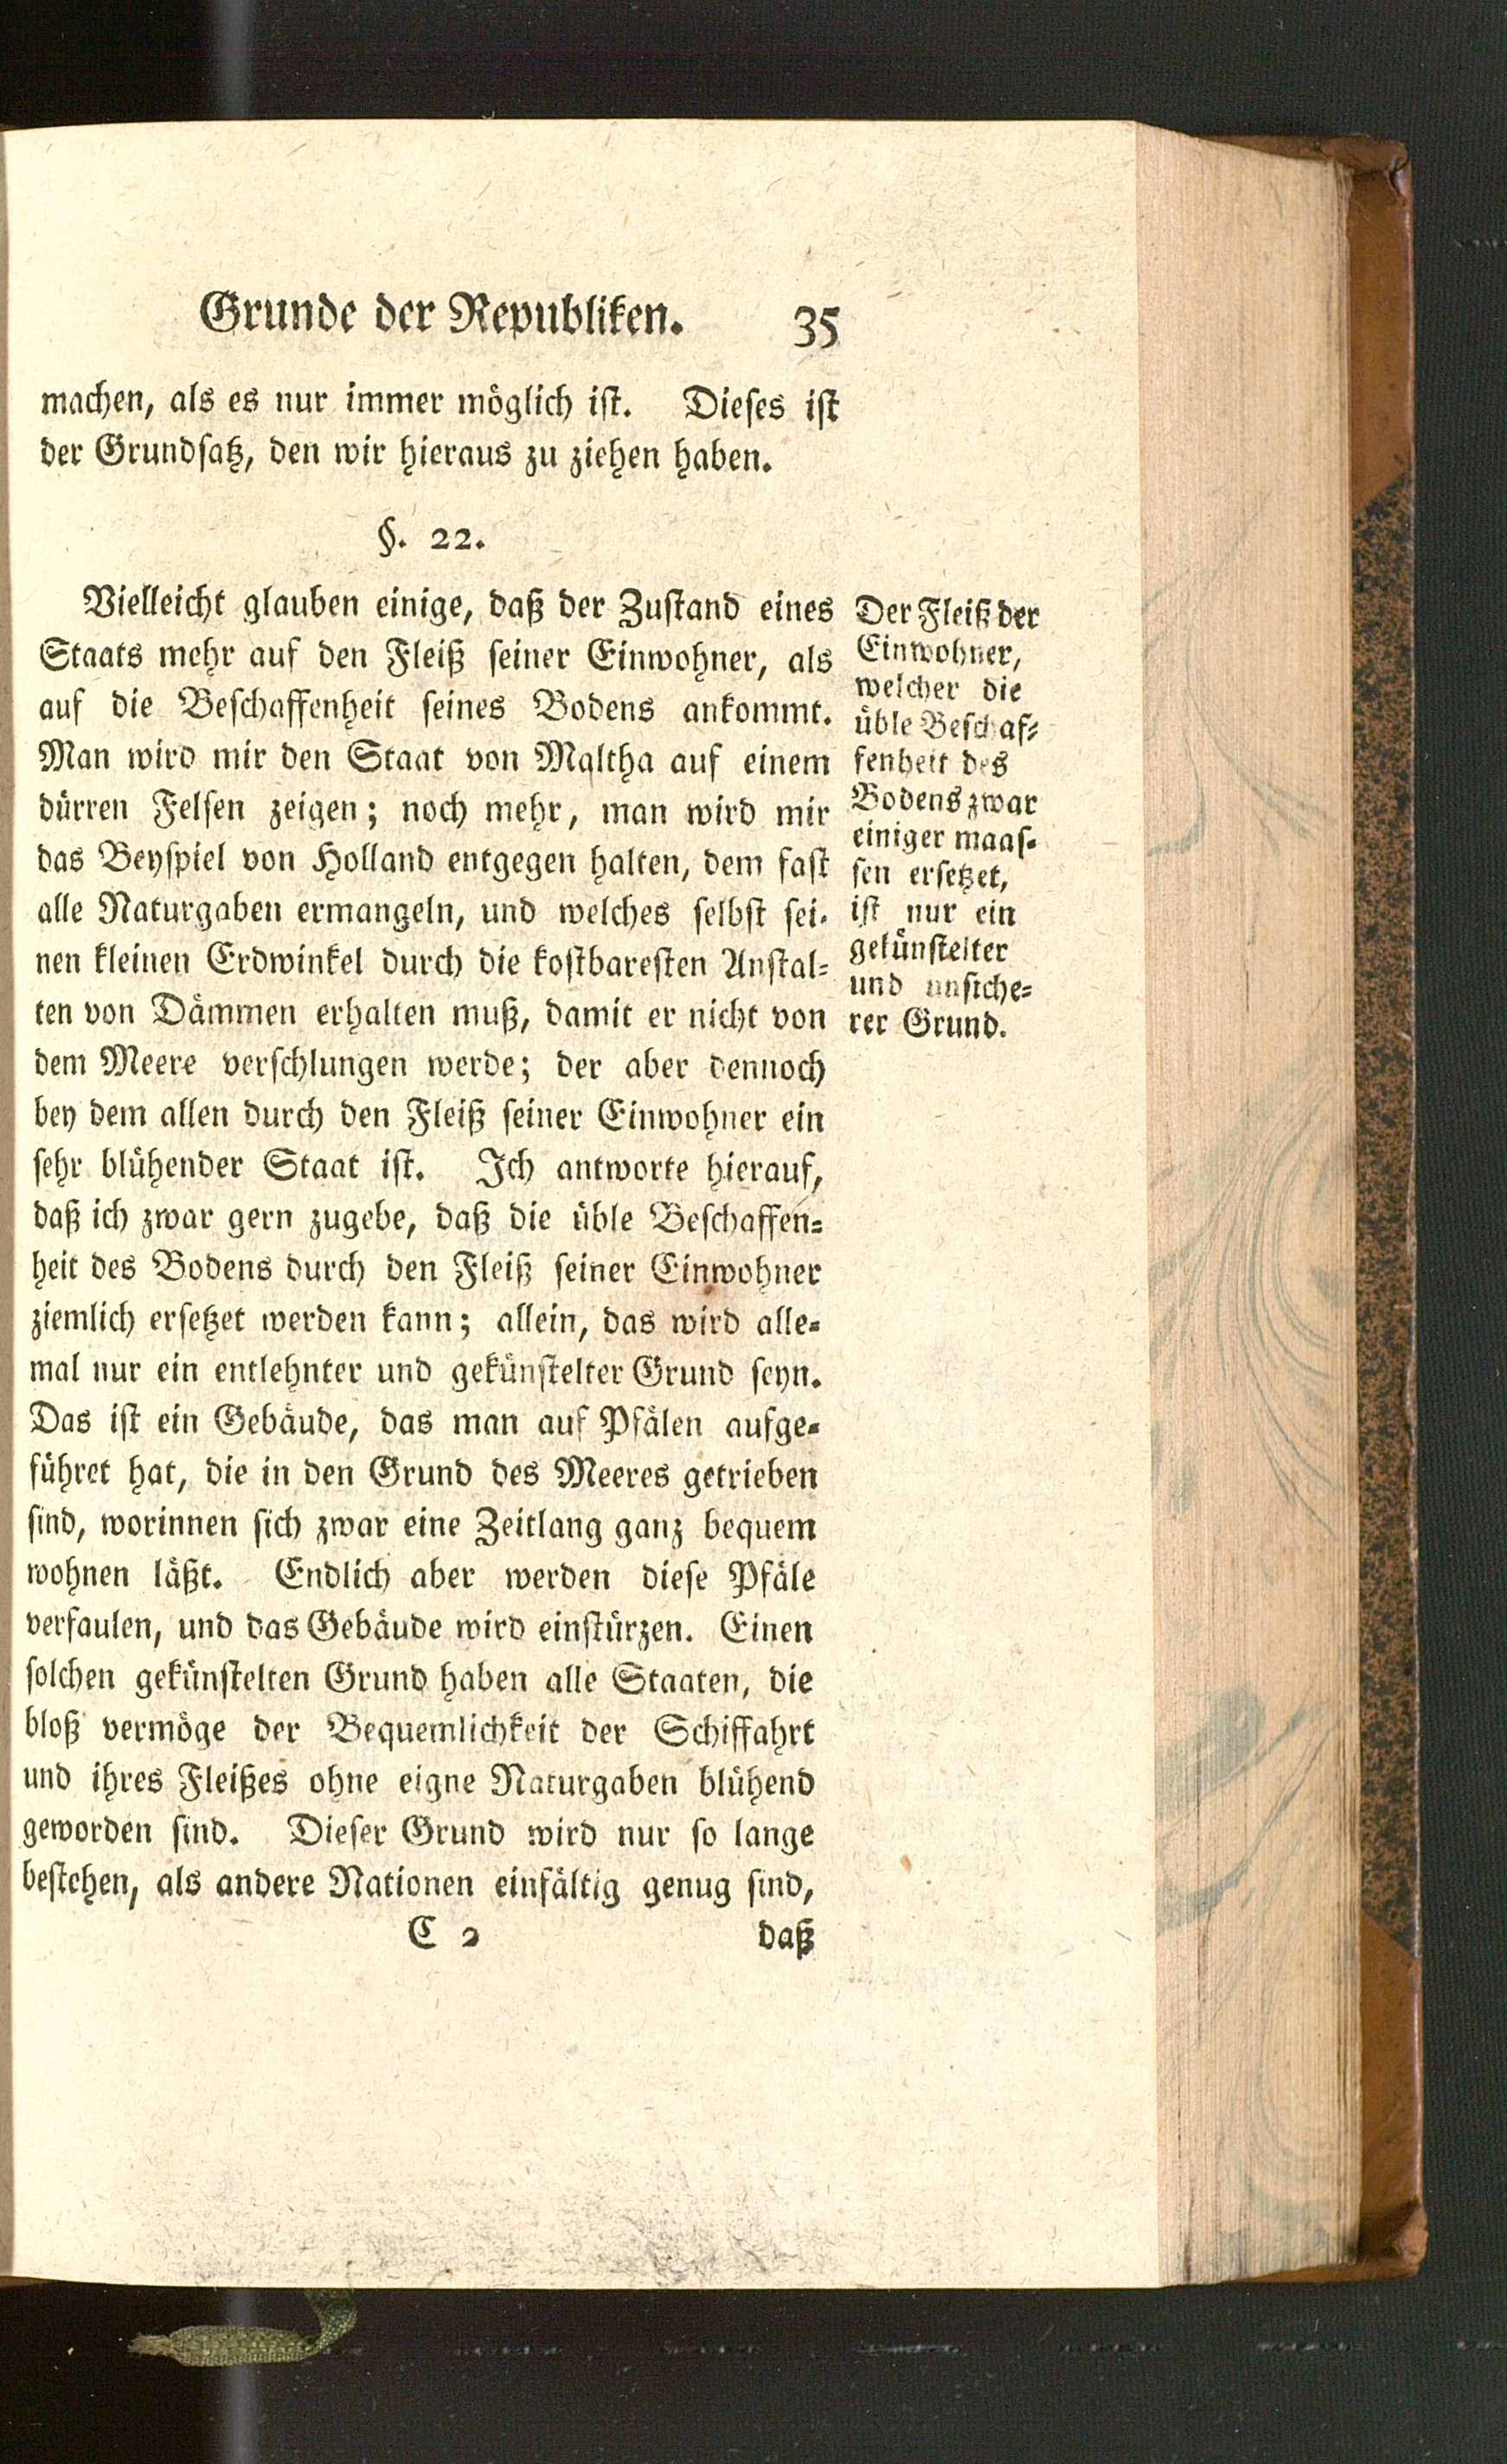 Grunde der Republiken. 35
machen, als es nur immer möglich ist. Dieses ist
der Grundsatz, den wir hieraus zu ziehen haben.
§. 22.
Vielleicht glauben einige, daß der Zustand eines
Staats mehr auf den Fleiß seiner Einwohner, als
auf die Beschaffenheit seines Bodens ankommt.
Man wird mir den Staat von Maltha auf einem
dürren Felsen zeigen; noch mehr, man wird mir
das Beyspiel von Holland entgegen halten, dem fast
alle Naturgaben ermangeln, und welches selbst sei-
nen kleinen Erdwinkel durch die kostbaresten Anstal-
ten von Dämmen erhalten muß, damit er nicht von
dem Meere verschlungen werde; der aber dennoch
bey dem allen durch den Fleiß seiner Einwohner ein
sehr blühender Staat ist. Ich antworte hierauf,
daß ich zwar gern zugebe, daß die üble Beschaffen-
heit des Bodens durch den Fleiß seiner Einwohner
ziemlich ersetzet werden kann; allein, das wird alle-
mal nur ein entlehnter und gekünstelter Grund seyn.
Das ist ein Gebäude, das man auf Pfälen aufge-
führet hat, die in den Grund des Meeres getrieben
sind, worinnen sich zwar eine Zeitlang ganz bequem
wohnen läßt. Endlich aber werden diese Pfäle
verfaulen, und das Gebäude wird einstürzen. Einen
solchen gekünstelten Grund haben alle Staaten, die
bloß vermöge der Bequemlichkeit der Schiffahrt
und ihres Fleißes ohne eigne Naturgaben blühend
geworden sind. Dieser Grund wird nur so lange
bestehen, als andere Nationen einfältig genug sind,
C 2 daß
Der Fleiß der
Einwohner,
welcher die
üble Beschaf-
fenheit des
Bodens zwar
einiger maas-
sen ersetzet,
ist nur ein
gekünstelter
und unsiche-
rer Grund.